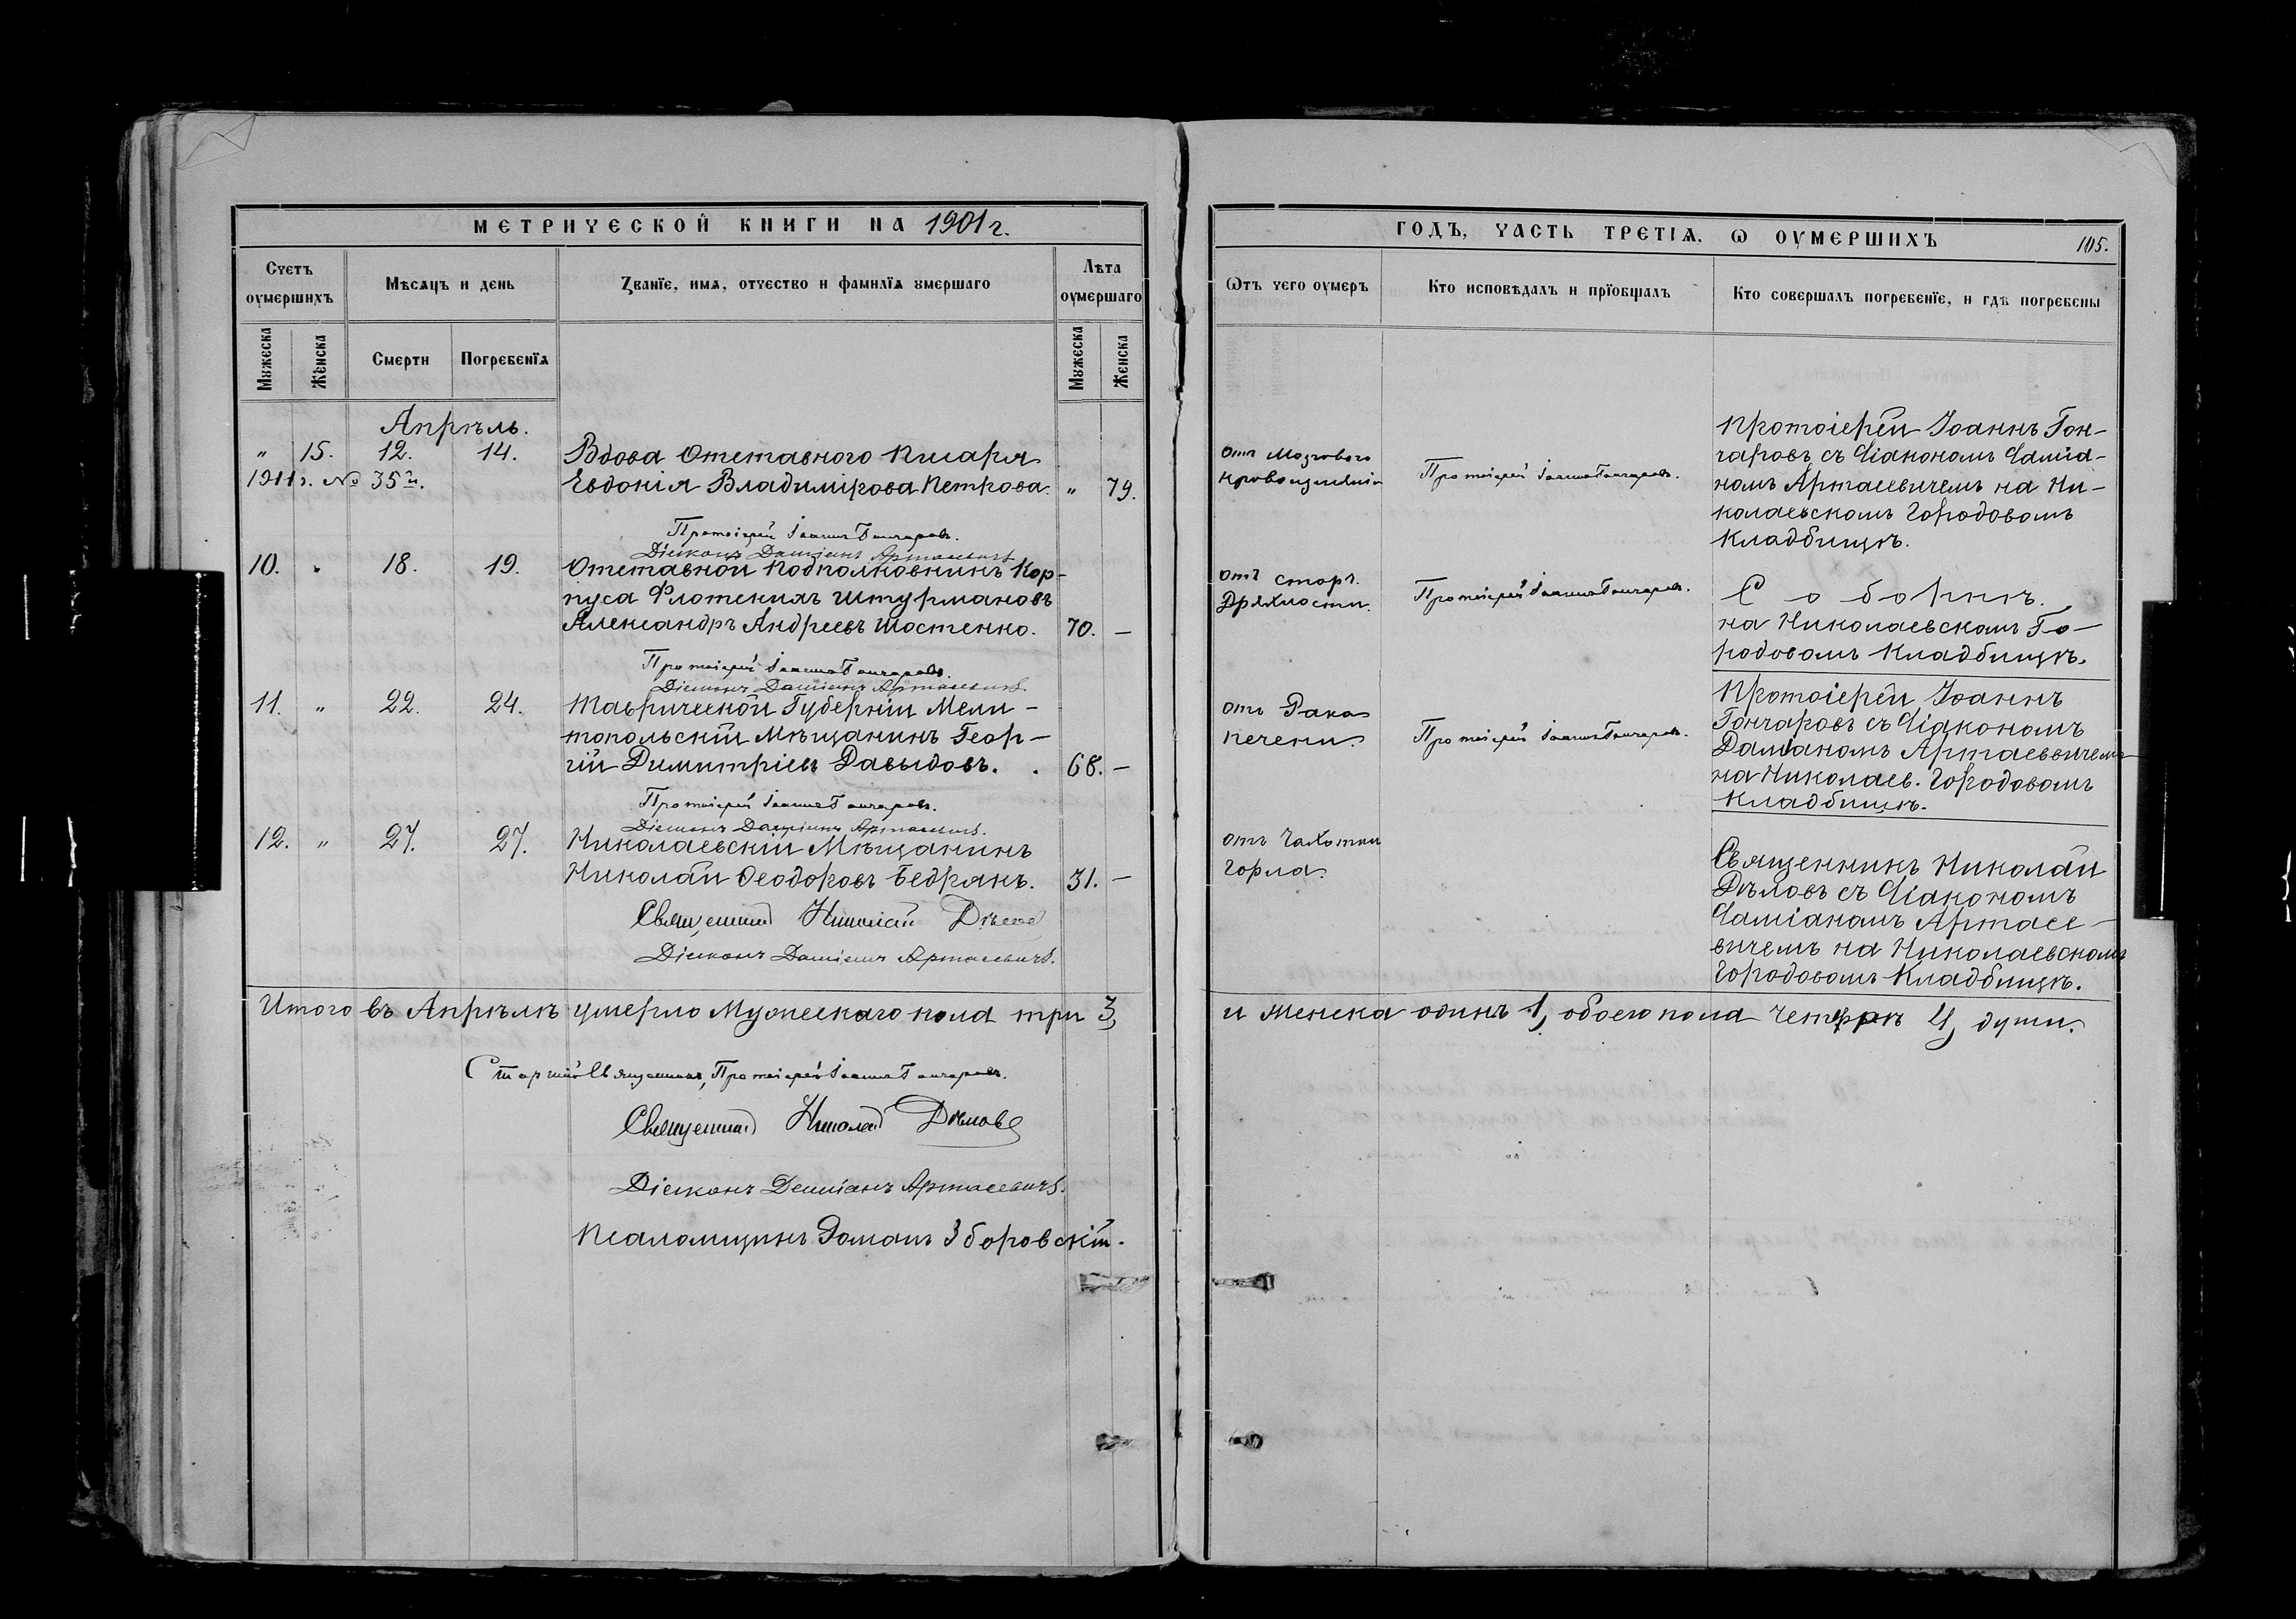 МЕТРИЧЕСКОЙ КНИГИ НА 1901 г.
Счетъ оумершихъ
Мѣсяцъ и день
Званїе, имя, отчество и фамилїя умершаго
Лѣта оумершаго
Мужеска
Женска
Смерти
Погребенїя
Мужеска
Женска
Апрѣль.
" 15. 12. 14. Вдова Отставного Писаря
1911 г. № 35
Евдокія Владимірова Петрова. " 79.
Протоіерей Іоаннъ Гончаровъ.
Діаконъ Даміанъ Артасевичъ
10. " 18. 19. Отставной Подполковникъ Кор-
пуса Флотскихъ Штурмановъ
Александръ Андреевъ Шостенко. 70. —
Протоіерей Іоаннъ Гончаровъ.
Діаконъ Даміанъ Артасевичъ.
11. " 22. 24. Таврической Губерніи Мели-
топольскій Мѣщанинъ Геор-
гій Димитріевъ Давыдовъ. . 68. —
Протоіерей Іоаннъ Гончаровъ.
Діаконъ Даміанъ Артасевичъ.
12. " 27. 27. Николаевскій Мѣщанинъ
Николай Ѳеодоровъ Бедрякъ. 31. —
Священникъ Николай Дѣловъ
Діаконъ Даміанъ Артасевичъ.
Итого въ Апрѣлѣ умерло Мужескаго пола три 3,
Старшій Священникъ, Протоіерей Іоаннъ Гончаровъ.
Священникъ Николай Дѣловъ
Діаконъ Даміанъ Артасевичъ.
Псаломщикъ Романъ Зборовскій.
ГОДЪ, ЧАСТЬ ТРЕТІЯ, Ѡ ОУМЕРШИХЪ
105.
Ѿтъ чего оумеръ
Кто исповѣдалъ и прїобщалъ
Кто совершалъ погребенїе, и гдѣ погребены
отъ Мозгового
кровоизліянія
Протоіерей Іоаннъ Гончаровъ.
Протоіерей Іоаннъ Гон-
чаровъ съ Діакономъ Даміа-
номъ Артасевичемъ на Ни-
колаевскомъ Городовомъ
Кладбищѣ.
отъ старч.
Дряхлости.
Протоіерей Іоаннъ Гончаровъ.
Соборнѣ.
на Николаевскомъ Го-
родовомъ Кладбищѣ.
отъ Рака
печени.
Протоіерей Іоаннъ Гончаровъ.
Протоіерей Іоаннъ
Гончаровъ съ Діакономъ
Даміаномъ Артасевичемъ
на Николаев. Городовомъ
Кладбищѣ.
отъ Чахотки
Горла.
Священникъ Николай
Дѣловъ съ Діакономъ
Даміаномъ Артасе-
вичемъ на Николаевскомъ
Городовомъ Кладбищѣ.
и Женска одинъ 1, обоего пола четыре 4, души.